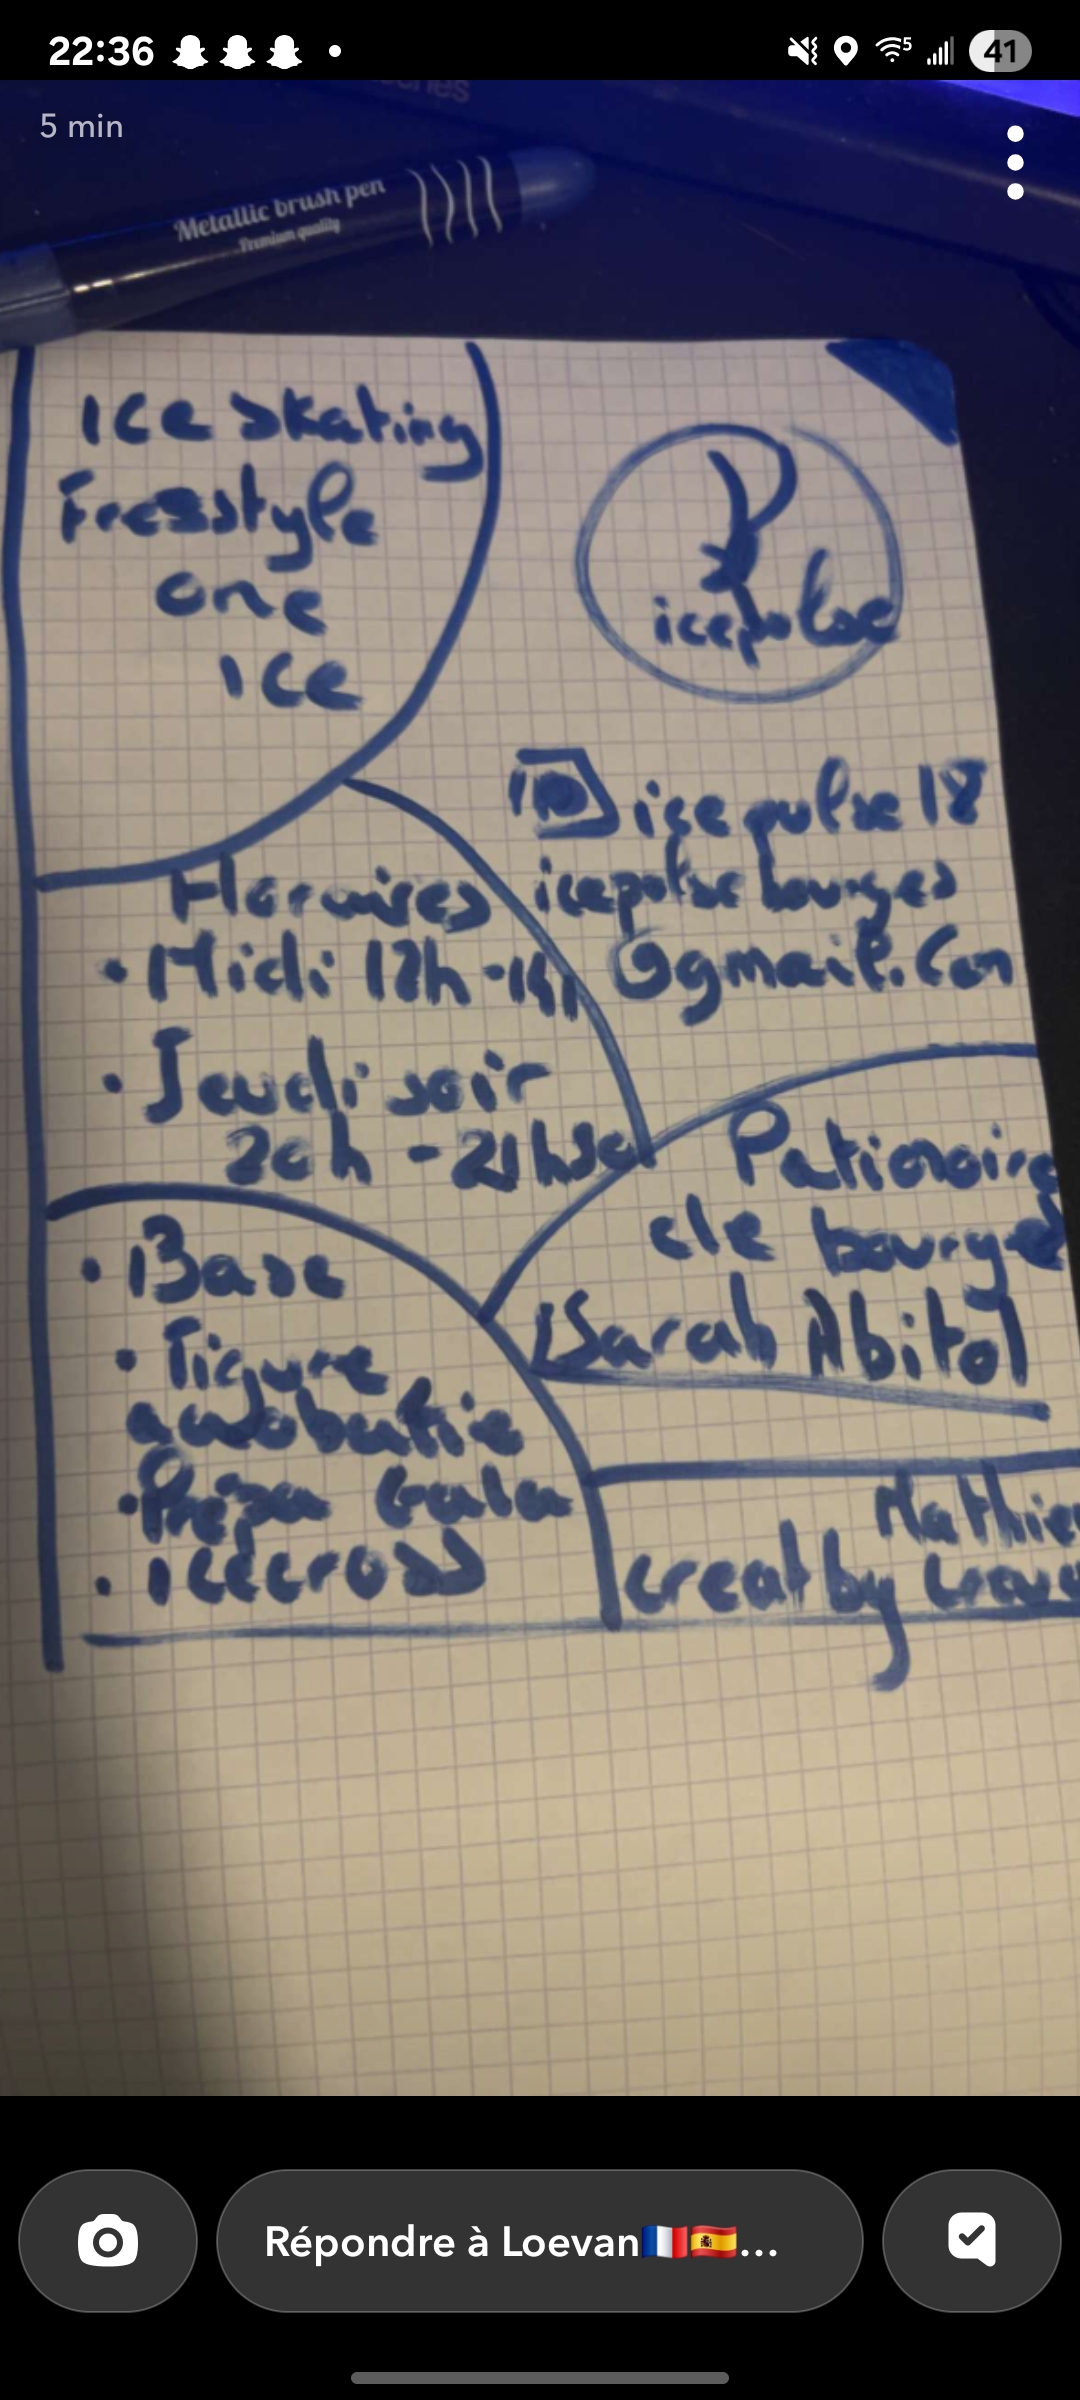 22:36
5
41
5 min
Metallic brush pen
Premium quality
Ice skating
Freestyle
one
ice
P
icepulse
icepulse 18
icepulse bourges
@gmail.com
Horaires
• Midi 12h-14h
• Jeudi soir
20h - 21h30
Patinoire
de bourges
Sarah Abitol
• Base
• Figure
acrobatie
• Prépa Gala
• icecross
Mathie
creat by
Répondre à Loevan🇫🇷🇪🇸...